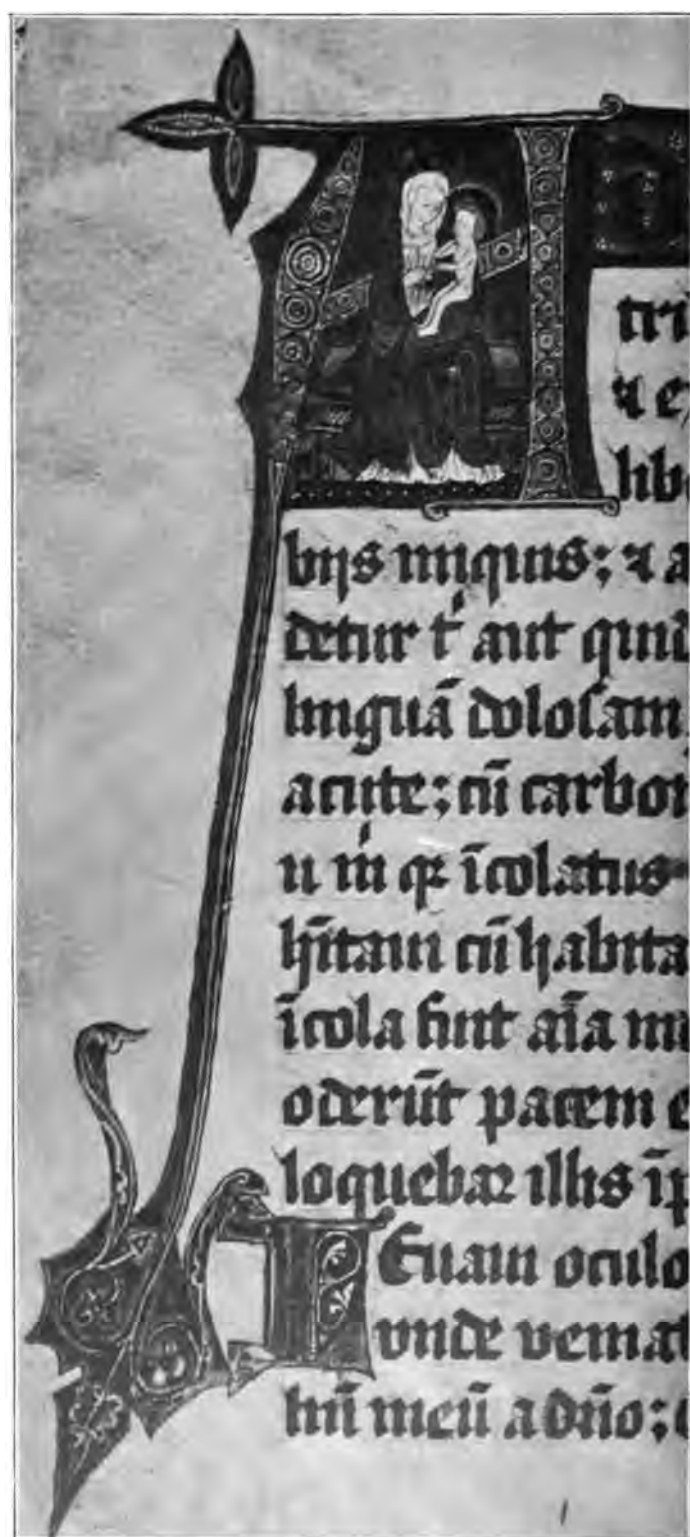 A D
tri
⁊ e
lib
bijs iniquis; ⁊ a
detur t͛ aut quid
linguā dolosam
acute; cū carbon
u m͛ qꝛ īcolatus
hītaui cū habita
īcola fuit aīa m
oderūt pacem e
loquebaꝛ illis īp
L Euaui oculo
vnde ueniat
liū meū a dn̄o;